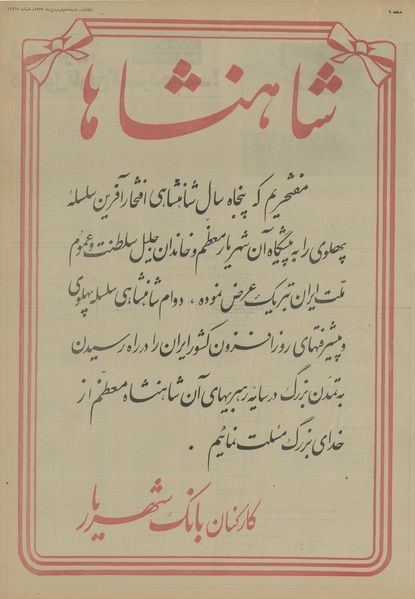 صفحه ۶
شاهنشاها
مفتخریم که پنجاه سال شاهنشاهی افتخارآفرین سلسله
پهلوی را به پیشگاه آن شهریار معظم و خاندان جلیل سلطنت و عموم
ملت ایران تبریک عرض نموده ، دوام شاهنشاهی سلسله پهلوی
و پیشرفتهای روزافزون کشور ایران را در راه رسیدن
به تمدن بزرگ در سایه رهبریهای آن شاهنشاه معظم از
خدای بزرگ مسئلت نمائیم .
کارکنان بانک شهریار